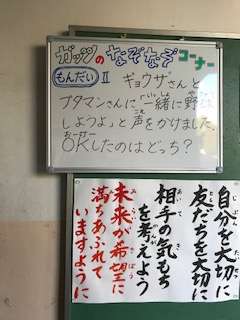 ガッツの なぞなぞ コーナー
もんだい II ギョウザさんと
ブタマンさんに「一緒に野球
しようよ」と声をかけました。
OKしたのはどっち?
自分を大切に
友だちを大切に
相手の気もち
を考えよう
未来が希望に
満ちあふれて
いますように